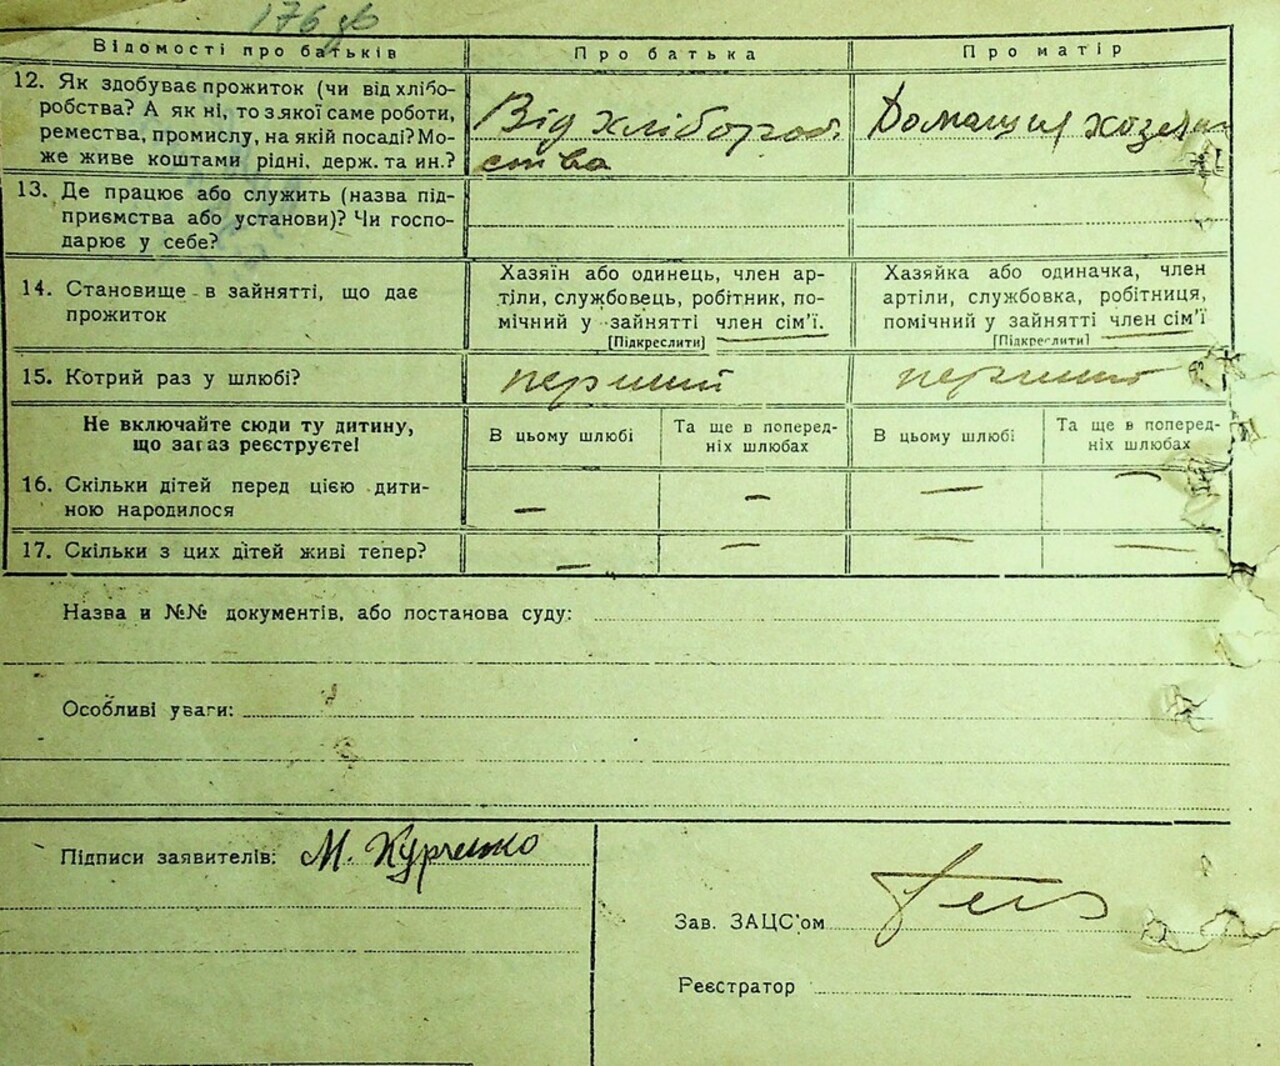 176 зв
Відомості про батьків
Про батька
Про матір
12. Як здобуває прожиток (чи від хлібо-
робства? А як ні, то з якої саме роботи,
ремества, промислу, на якій посаді? Мо-
же живе коштами рідні, держ. та ин.?
Від хлібороб
ства
Домашня хозяй
13. Де працює або служить (назва під-
приємства або установи)? Чи госпо-
дарює у себе?
14. Становище в зайнятті, що дає
прожиток
Хазяїн або одинець, член ар-
тіли, службовець, робітник, по-
мічний у зайнятті член сім'ї.
[Підкреслити]
Хазяйка або одиначка, член
артіли, службовка, робітниця,
помічний у зайнятті член сім'ї
[Підкреслити]
15. Котрий раз у шлюбі?
перший
перший
Не включайте сюди ту дитину,
що зараз реєструєте!
В цьому шлюбі
Та ще в поперед-
ніх шлюбах
В цьому шлюбі
Та ще в поперед-
ніх шлюбах
16. Скільки дітей перед цією дити-
ною народилося
—
—
—
—
17. Скільки з цих дітей живі тепер?
—
—
—
—
Назва и №№ документів, або постанова суду:
Особливі уваги:
Підписи заявителів: М. Курченко
Зав. ЗАЦС'ом
Реєстратор